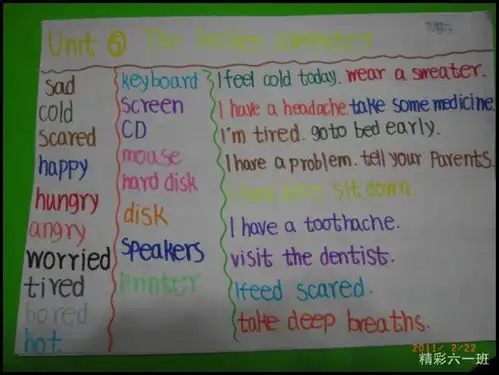 Unit ⑤ The computer
sad
cold
scared
happy
hungry
angry
worried
tired
bored
hot
keyboard
screen
CD
mouse
hard disk
disk
speakers
Printer
I feel cold today. wear a sweater.
I have a headache. take some medicine.
I'm tired. go to bed early.
I have a problem. tell your Parents.
I feel sit down.
I have a toothache.
visit the dentist.
I feed scared.
take deep breaths.
2011/ 2/22
精彩六一班